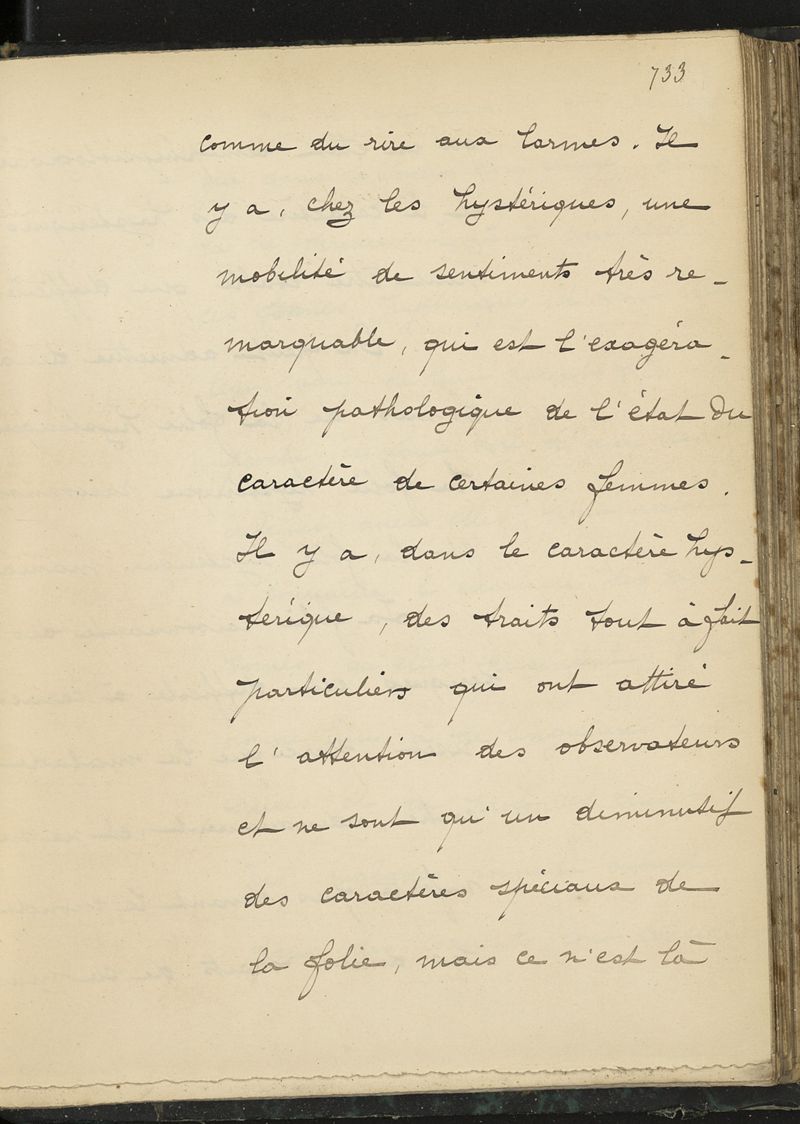 733
comme du rire aux larmes. Il
y a, chez les hystériques, une
mobilité de sentiments très re-
marquable, qui est l'exagéra-
tion pathologique de l'état du
caractère de certaines femmes.
Il y a, dans le caractère hys-
térique, des traits tout à fait
particuliers qui ont attiré
l'attention des observateurs
et ne sont qu'un diminutif
des caractères spéciaux de
la folie, mais ce n'est là